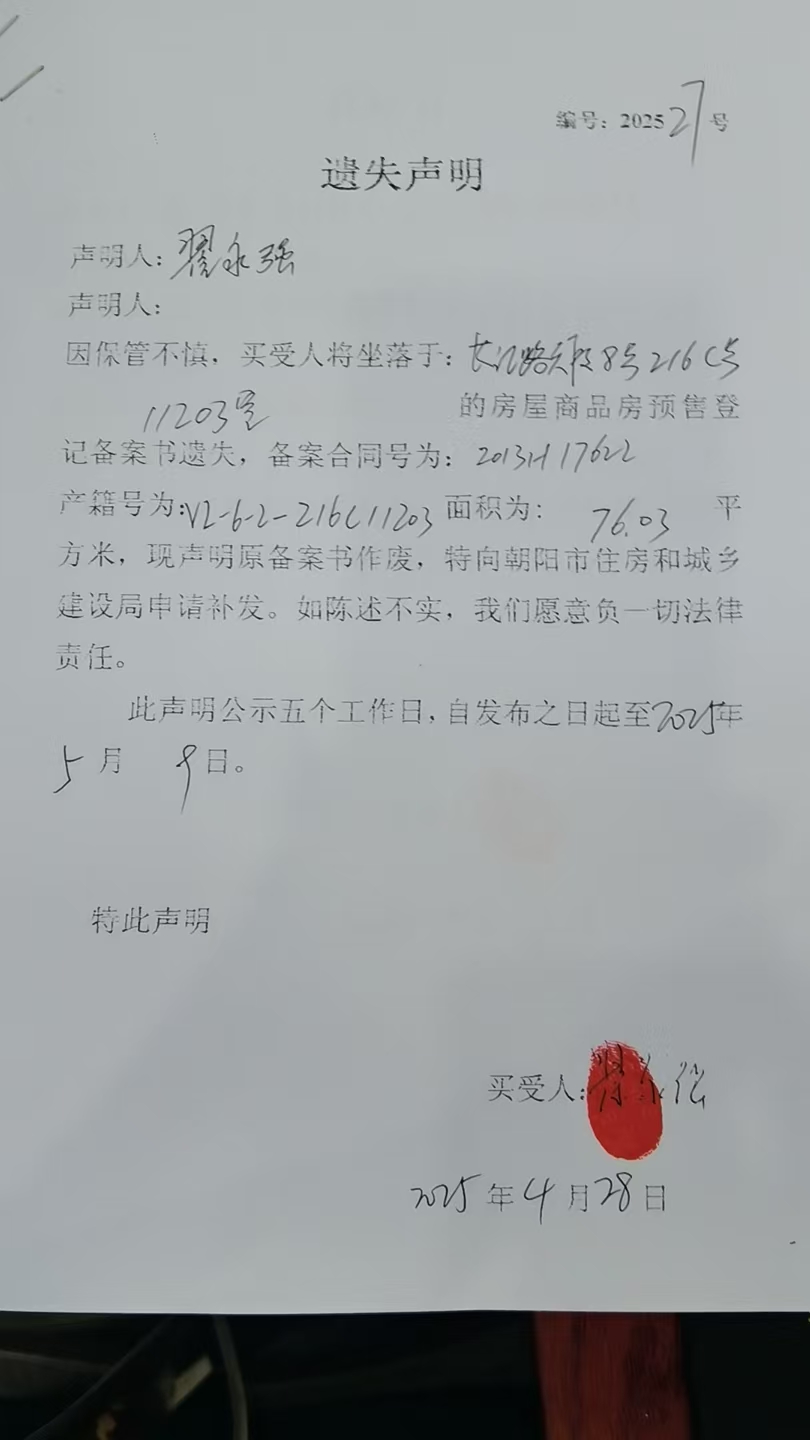 编号：2025 27号
遗失声明
声明人：翟永强
声明人：
因保管不慎，买受人将坐落于：长江路 段8号216C号
11203室 的房屋商品房预售登
记备案书遗失，备案合同号为：2013H17622
产籍号为：V2-6-2-216C11203 面积为： 76.03 平
方米，现声明原备案书作废，特向朝阳市住房和城乡
建设局申请补发。如陈述不实，我们愿意负一切法律
责任。
此声明公示五个工作日，自发布之日起至2025年
5月 9日。
特此声明
买受人：翟永强
2025年4月28日